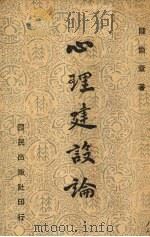 陳儀章著
心理建設論
國民出版社印行